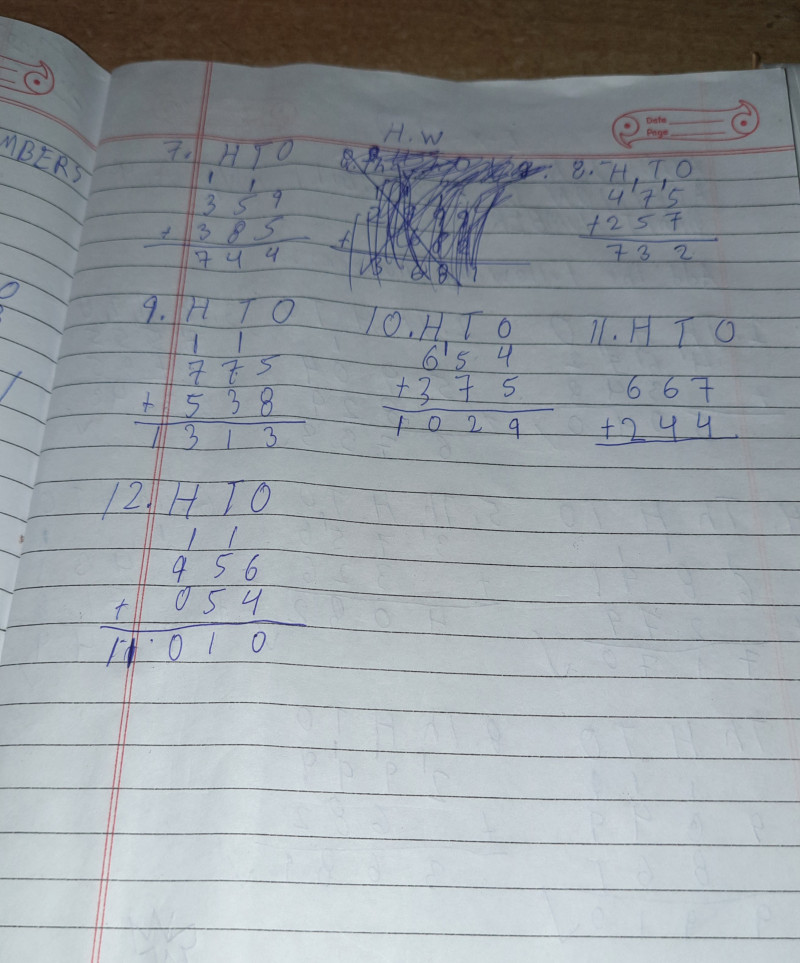 H.W
Date
Page
MBERS
7. H T O
1 1
3 5 9
+ 3 8 5
7 4 4
8. H T O
1 1
4 7 5
+ 2 5 7
7 3 2
9. H T O
1 1
7 7 5
+ 5 3 8
1 3 1 3
10. H T O
1
6 5 4
+ 3 7 5
1 0 2 9
11. H T O
6 6 7
+ 2 4 4
12. H T O
1 1
9 5 6
+ 0 5 4
1 0 1 0